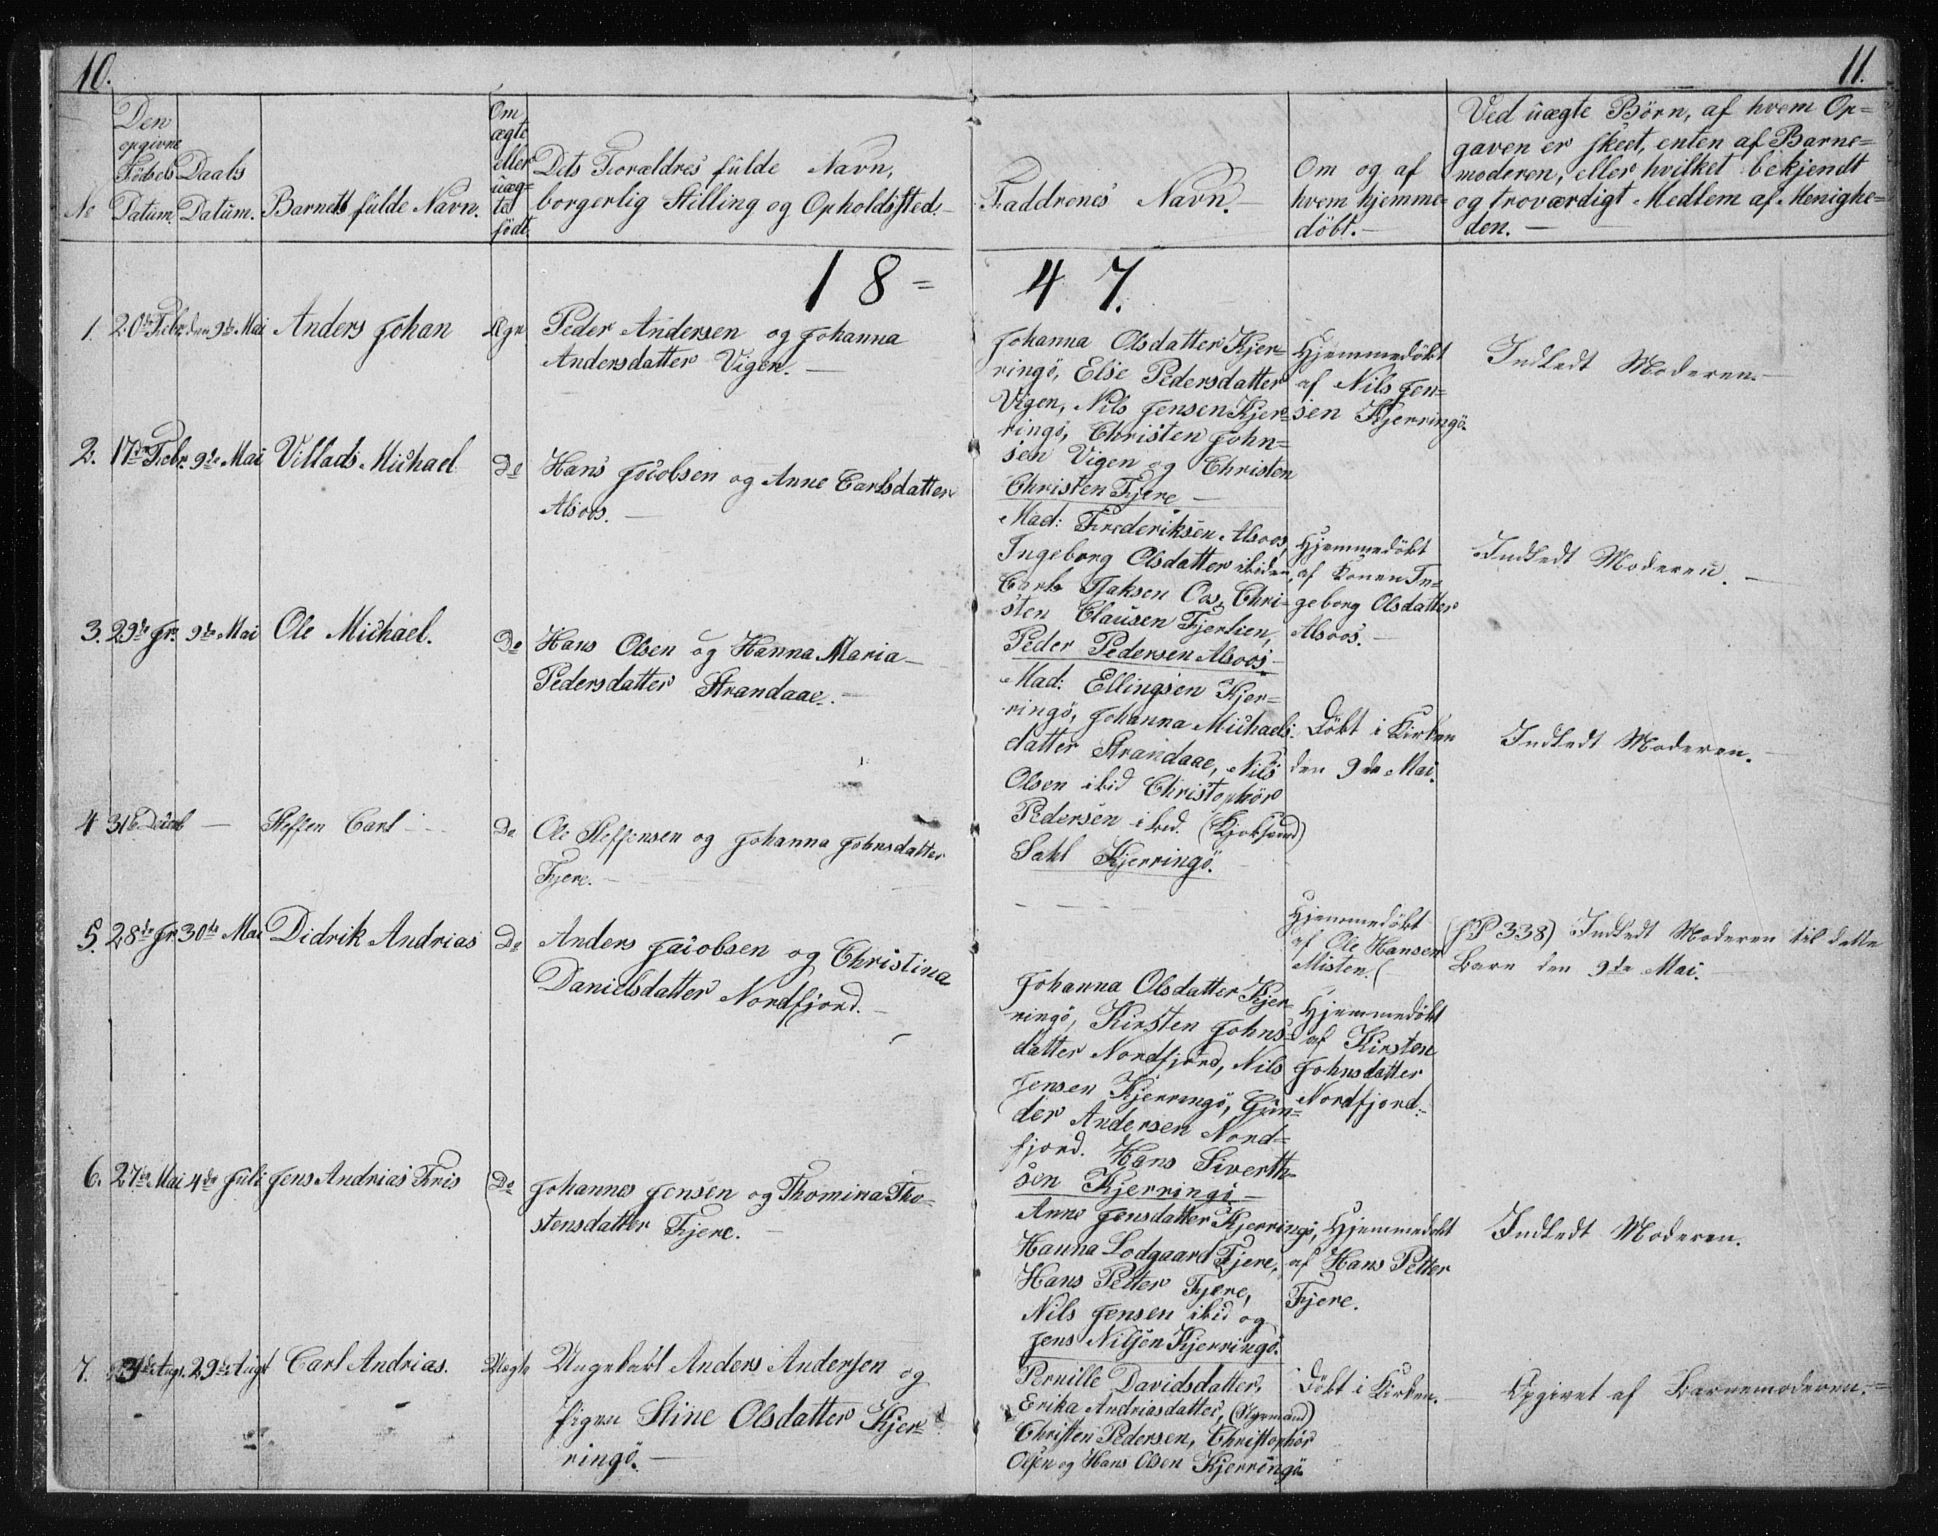 10.
11.
No
Den opgivne Fødsels Datum.
Daabs Datum.
Barnets fulde Navn.
Om ægte eller uægte født.
Dets Forældres fulde Navn,
borgerlig Stilling og Opholdssted.
Faddrenes Navn.
Om og af
hvem hjemme=
döbt.
Ved uægte Börn, af hvem Op=
gaven er skeet, enten af Barne=
moderen, eller hvilket bekjendt
og troværdigt Medlem af Menighe=
den.
18=47.
1. 20de Febr. den 9de Mai Anders Johan Ægte
Peder Andersen og Johanna
Andersdatter Vigen.
Johanna Olsdatter Kjer=
ringö, Else Pedersdatter
Vigen, Nils Jensen Kjer=
ringö, Christen John=
sen Vigen og Christen
Christen Fjere
Hjemmedöbt
af Nils Jen=
sen Kjerringö.
Indledt Moderen.
2. 17de Febr. 9de Mai Villads Michael Do
Hans Jocobsen og Anne Carlsdatter
Alsoos.
Mad: Frederiksen Alsoos,
Ingeborg Olsdatter ibidem,
Carl Isaksen Oos, Chri=
sten Clausen Fjerlien,
Peder Pedersen Alsoos
Hjemmedöbt
af Konen In=
geborg Olsdatter
Alsoos.
Indledt Moderen.
3. 29de Jr. 9de Mai Ole Michael. Do
Hans Olsen og Hanna Maria
Pedersdatter Strandaae.
Mad: Ellingsen Kjer=
ringö, Johanna Michaels=
datter Strandaae, Nils
Olsen ibid Christophör
Pedersen ibid. (Kjoksund)
Sahl Kjerringö.
Döbt i Kirken
den 9de Mai.
Indledt Moderen.
4 31te Decbr Steffen Carl Do
Ole Steffensen og Johanna Johnsdatter
Fjere.
Hjemmedöbt
af Ole Hansen
Misten.
(f P 338) Indledt Moderen til dette
Barn den 9de Mai.
5. 28de Jr 30te Mai Didrik Andrias Do
Anders Jaiobsen og Christina
Danielsdatter Nordfjord.
Johanna Olsdatter Kjer=
ringö, Kirsten Johns=
datter Nordfjord, Nils
Jensen Kjerringö, Gun=
der Andersen Nord=
fjord. Hans Siverth=
sen Kjerringö
Hjemmedöbt
af Kirsten
Johnsdatter
Nordfjord.
6. 27de Mai 4de Juli Jens Andrias Friis Do
Johannes Jensen og Thomina Tho=
stensdatter Fjere.
Anne Jensdatter Kjerringö,
Hanna Lodgaard Fjere,
Hans Petter Fjere,
Nils Jensen ibid og
Jens Nilsen Kjerringö.
Hjemmedöbt
af Hans Petter
Fjere.
Indledt Moderen.
7. 3de Aug. 29de Augt Carl Andrias. Uægte
Ungekarl Anders Andersen og
Pigen Stine Olsdatter Kjer=
ringö.
Pernille Davidsdatter,
Erika Andriasdatter, (Styrmand)
Christen Pedersen, Christophör
Olsen og Hans Olsen Kjerringö.
Döbt i Kirken.
Opgivet af Barnemoderen.